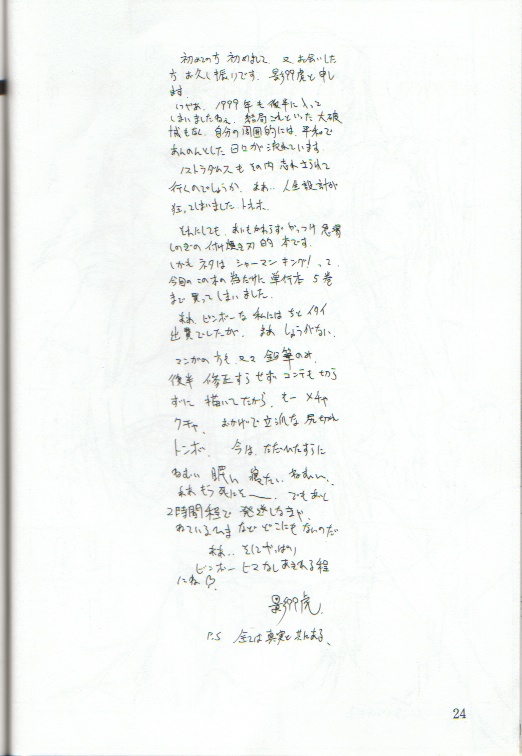 初めての方 初めまして 又 お会いした
方 お久し振りです。 影郎虎と申し
ます。
いやぁ、1999年も後半に入って
しまいましたねぇ。結局これといった大破
壊もなく、自分の周囲的には、平和で
あんのんとした日々が流れています。
ノストラダムスもその内忘れ去られて
行くのでしょうか。まぁ‥人生設計が
狂ってしまいました
それにしても、あいもかわらずやっつけ
しのぎの 的 本です。
しかもネタはシャーマンキング！って。
今回のこの本の為だけに単行本5巻
まで買ってしまいました。
まぁ、ビンボーな私にはちとイタイ
出費でしたが、まぁしょうがない。
マンガの方も、又々鉛筆のみ、
後半 修正すらせず コンテも切ら
ずに 描いてたから、もー メチャ
クチャ。おかげで立派な尻切れ
トンボ。 今は、ただひたすらに
ねむい 眠い 寝たい ねむい、
ああもう死にそ〜。でもあと
2時間程で発送しなきゃ。
ねているひまなどどこにもないのだ
まぁ‥そしてやっぱり
ビンボーヒマなしあきれる程
にね♡
影郎虎
P.S 全ては真実と共にある、
24